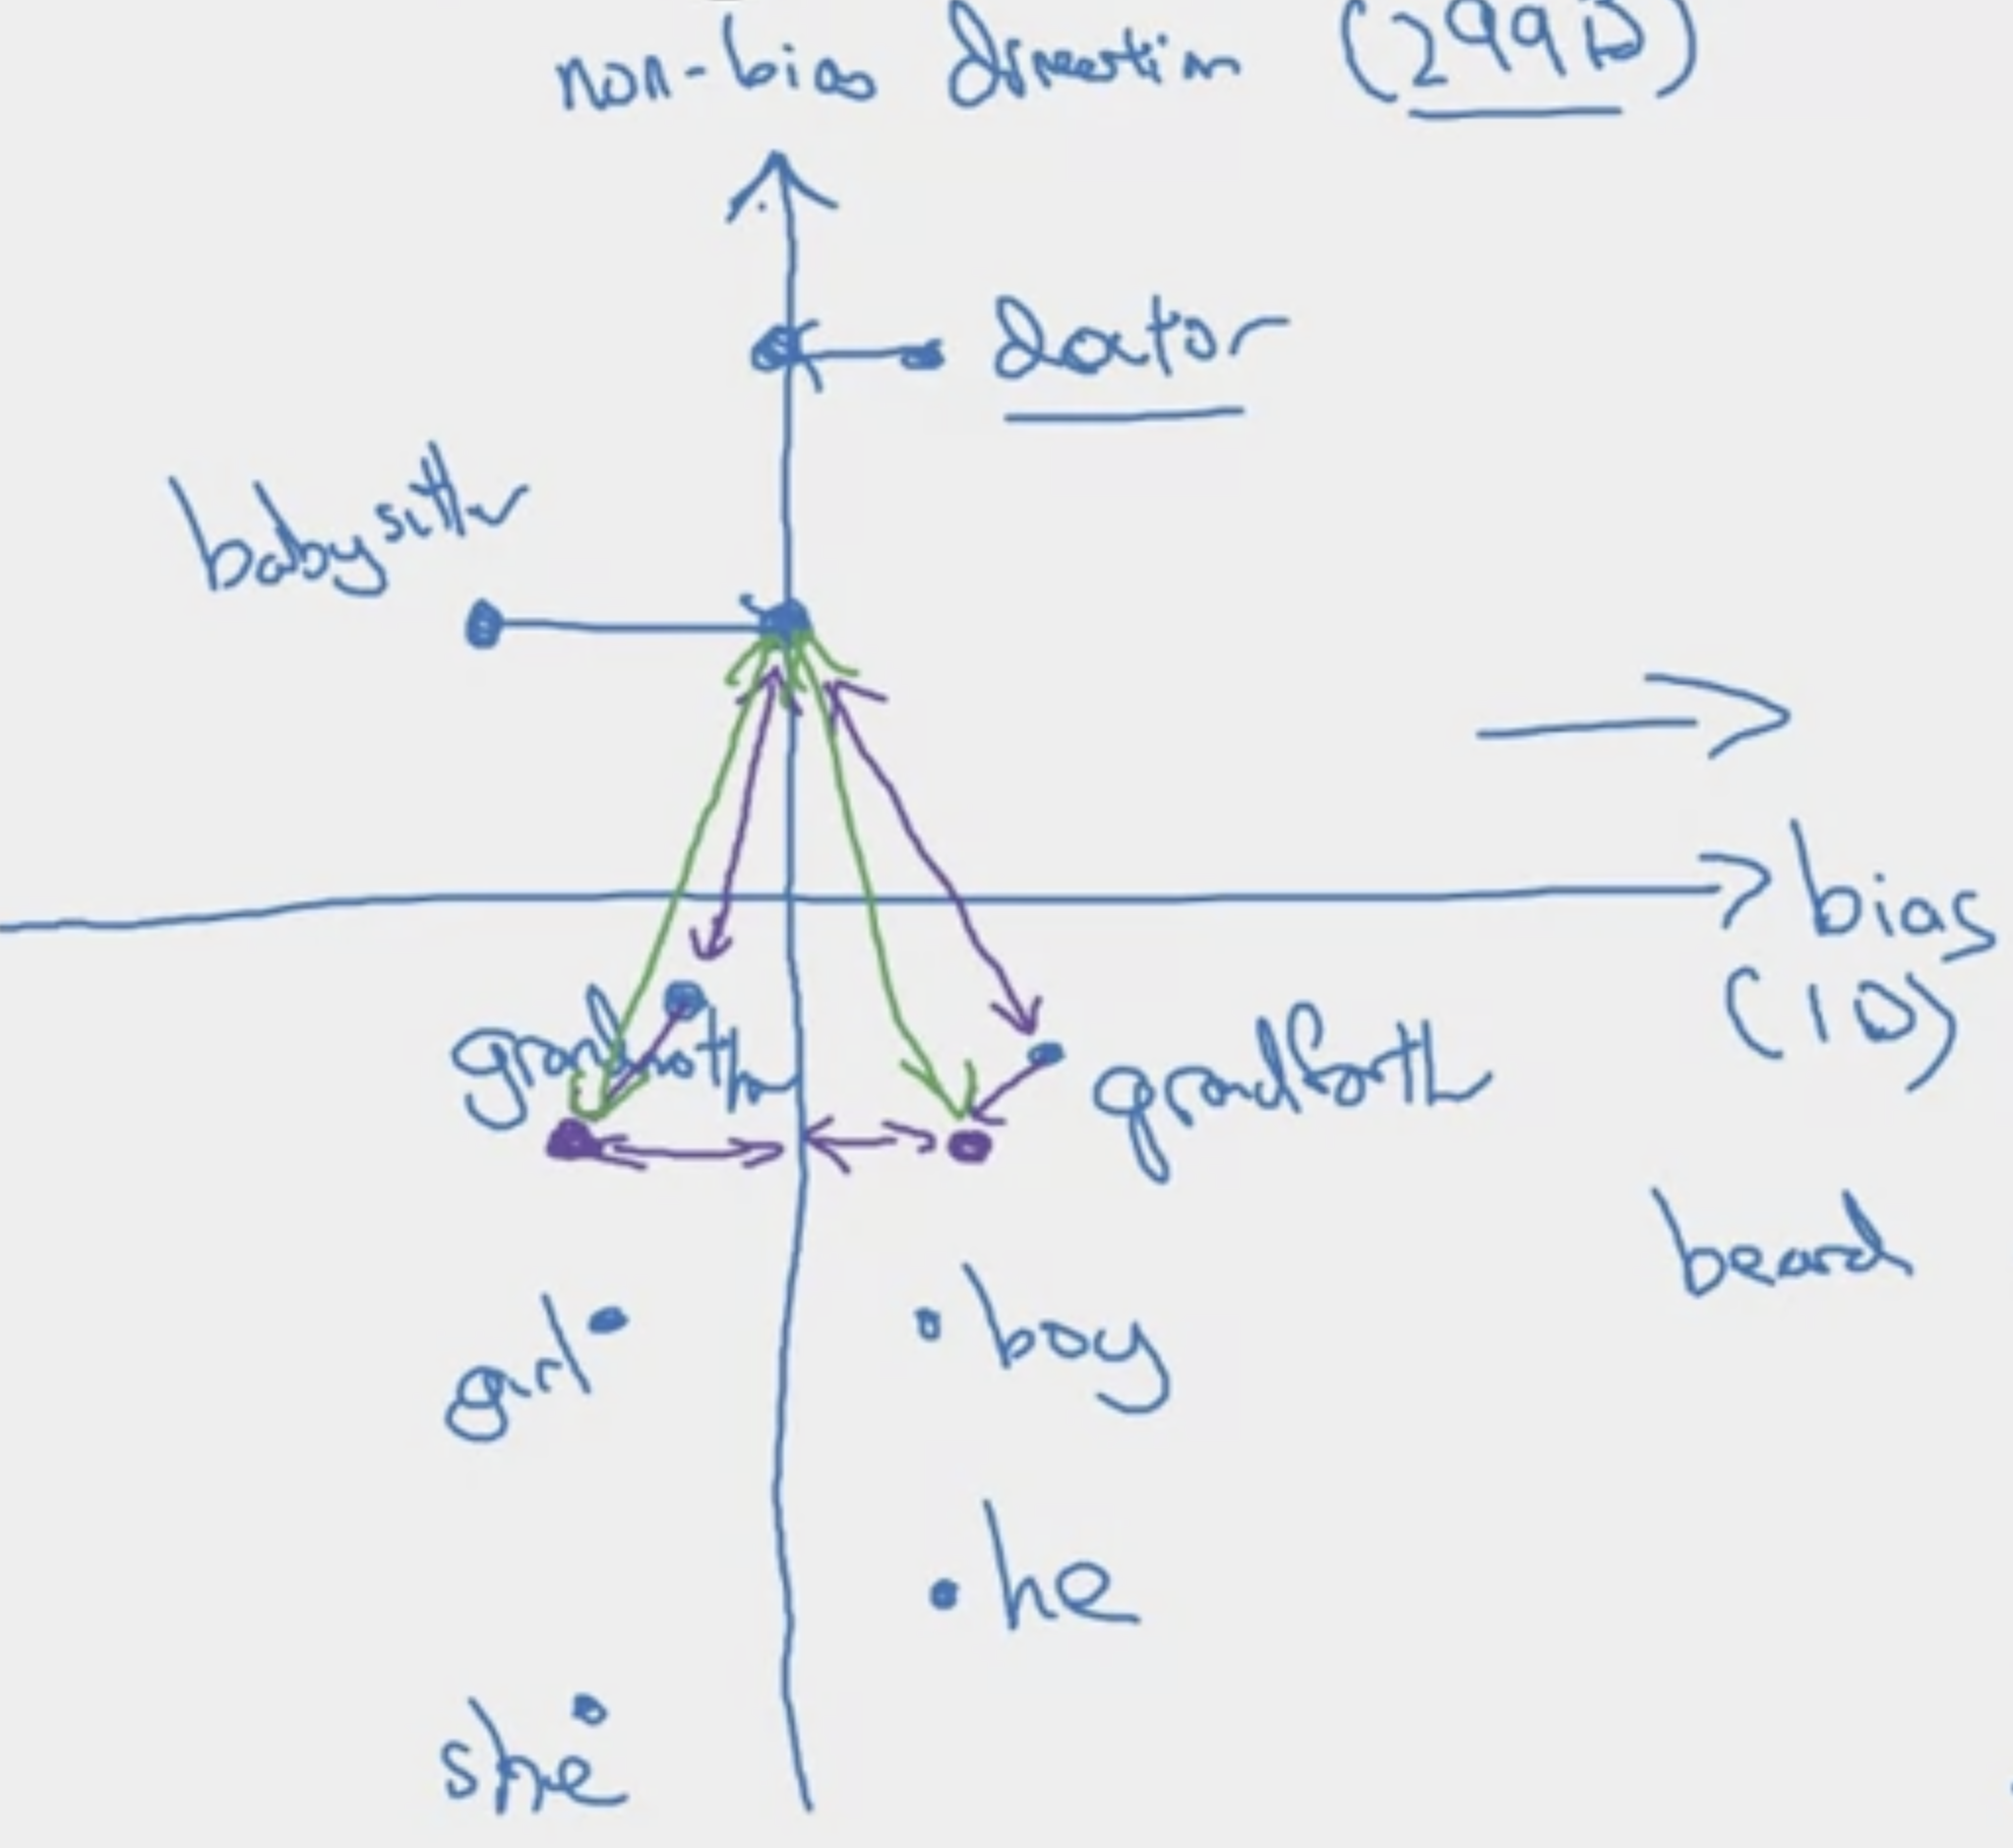 non-bias direction (299D)
doctor
babysitter
bias
(1D)
grandmother
grandfather
beard
girl
boy
he
she